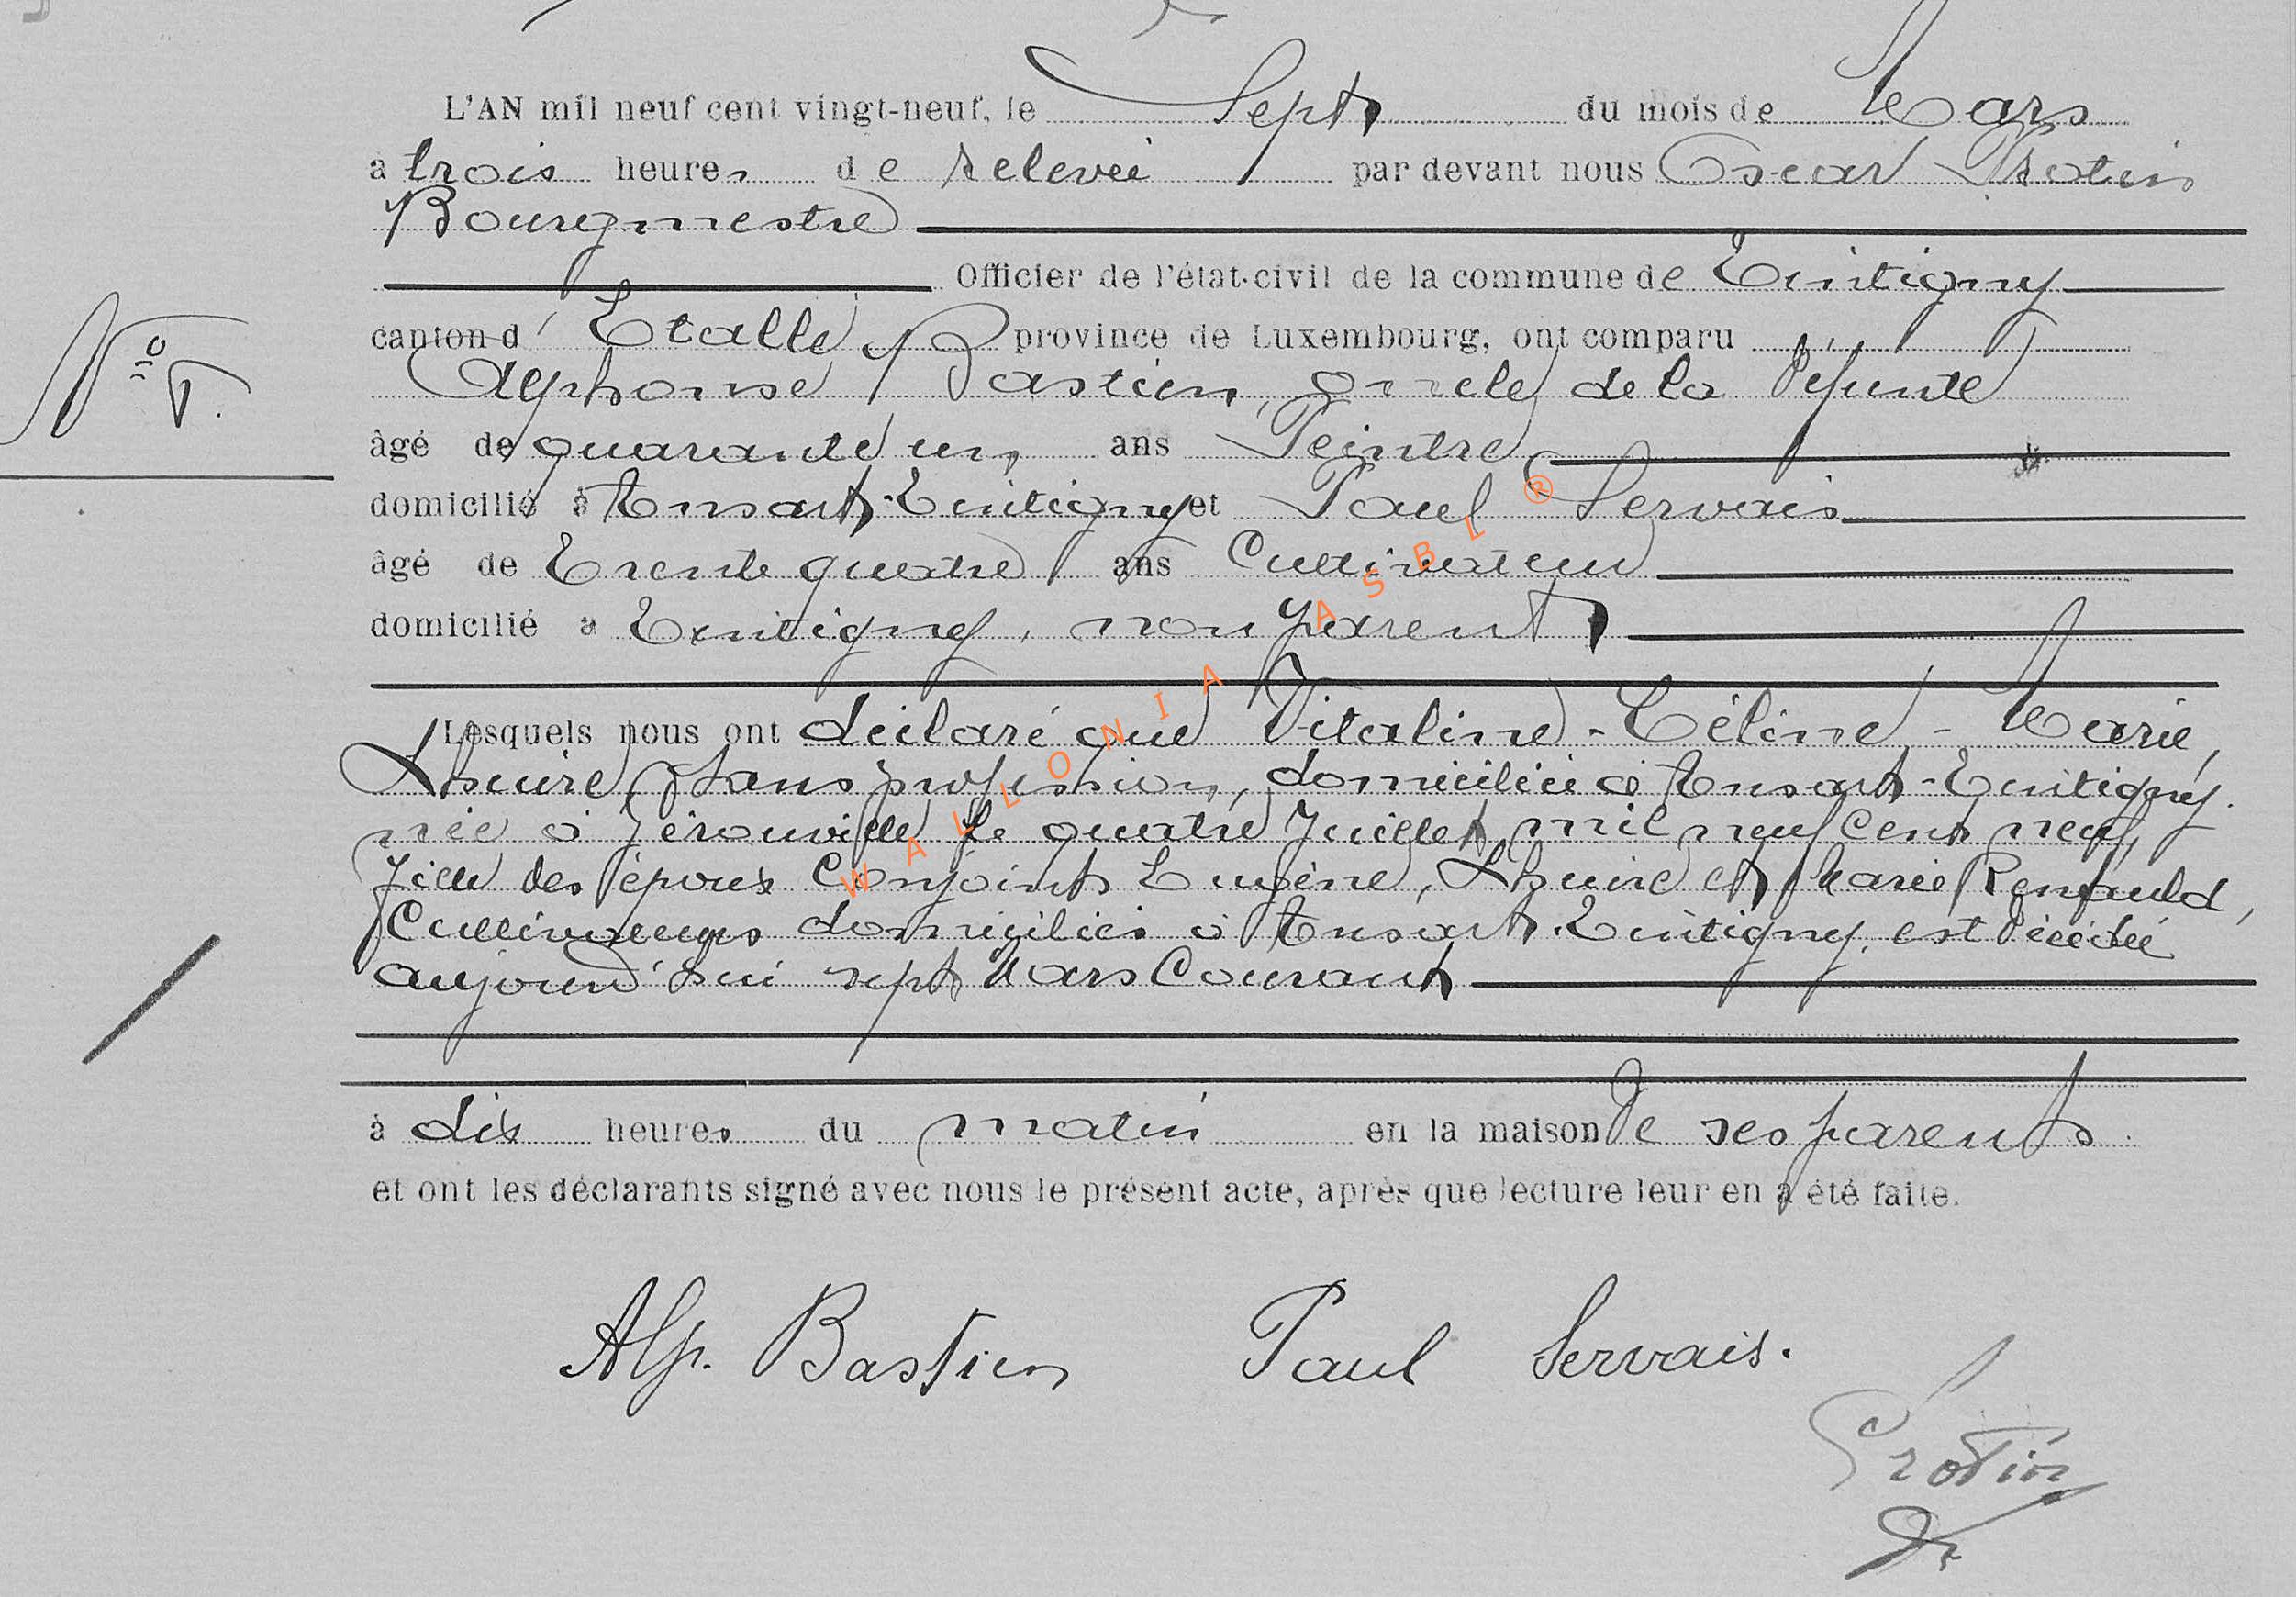 L'AN mil neuf cent vingt-neuf, le Sept du mois de Mars
à trois heures de relevée par devant nous Oscar Protin
Bourgmestre
Officier de l'état-civil de la commune de Tintigny
canton d'Etalle province de Luxembourg, ont comparu
Alphonse Bastien, oncle de la défunte
N°
âgé de quarante un ans Peintre
domicilié à Ansart-Tintigny et Paul Servais
âgé de Trente quatre ans Cultivateur
domicilié à Tintigny, non parent
Lesquels nous ont déclaré que Vitaline-Céline-Marie,
Lhuire, sans profession, domiciliée à Ansart-Tintigny.
née à Jérouville le quatre Juillet mil neuf Cent neuf,
fille des époux Conjoints Eugène, Lhuire et Marie Renauld,
Cultivateurs domiciliés à Ansart-Tintigny, est décédée
aujourd'hui sept Mars Courant
à dix heures du matin en la maison de ses parents.
et ont les déclarants signé avec nous le présent acte, après que lecture leur en a été faite.
Alp. Bastien Paul Servais.
Protin
WALLONIA ASBL ®